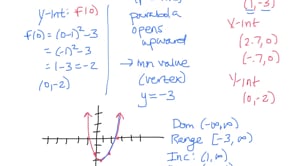 y-int: f(0)
f(0) = (0-1)²-3
= (-1)²-3
= 1-3 = -2
(0,-2)
parabola
opens
upward
→ min value
(vertex)
y = -3
(1,-3)
X-int
(2.7, 0)
(-.7, 0)
Y-int
(0,-2)
Dom (-∞,∞)
Range [-3, ∞)
Inc: (1, ∞)